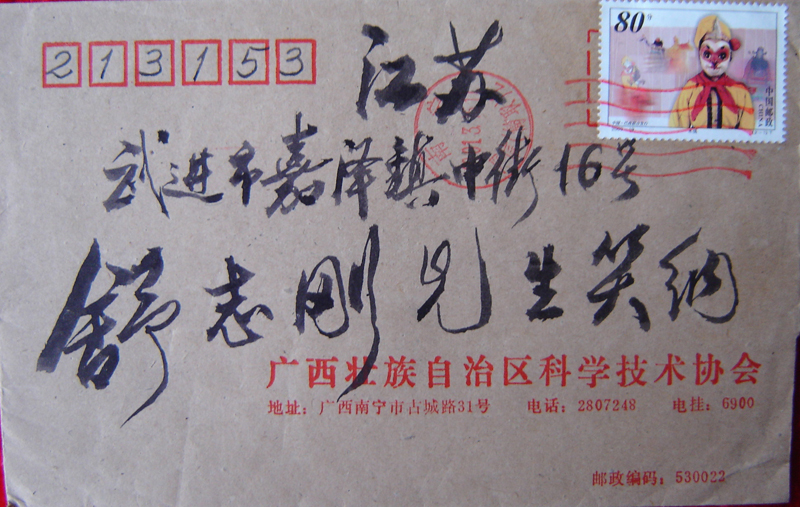 213153
80分
中国邮政
CHINA
江苏
武进市嘉泽鎮中街16号
舒志刚兄生笑纳
广西壮族自治区科学技术协会
地址：广西南宁市古城路31号 电话：2807248 电挂：6900
邮政编码：530022